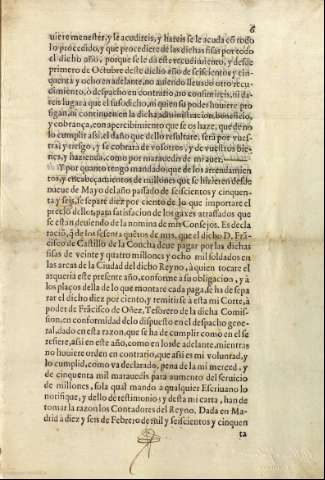 6
uiere menester, y le acudireis, y hareis se le acuda cõ todo
lo procedido, y que procediere de las dichas sisas por todo
el dicho año, porque se le dà este recudimiento, y desde
primero de Octubre deste dicho año de seiscientos y cin-
quenta y ocho en adelante, no auiendo lleuado otro recu-
dimiento, ò despacho en contrario, no consintireis, ni da-
reis lugar à que el susodicho, ni quien su poder huuiere pro
sigan, ni continuen en la dicha administracion, beneficio,
y cobrança, con apercibimiento que se os haze, que de no
lo cumplir assi, el daño que dello resultare, serà por vues-
tra, y riesgo, y se cobrarà de vosotros, y de vuestros bie-
nes, y hazienda, como por marauedis de mi auer.
Y por quanto tengo mandado, que de los arrendamien
tos, y encabeçamientos de millones que se hizieren desde
nueue de Mayo del año passado de seiscientos y cinquen-
ta y seis, se separe diez por ciento de lo que importare el
precio dellos, para satisfacion de los gaxes atrassados que
se estàn deuiendo de la nomina de mis Consejos. Es decla
raciõ, q̃ de los sesenta quẽtos de mrs. que el dicho D. Frã-
cisco de Castillo de la Concha deue pagar por las dichas
sisas de veinte y quatro millones y ocho mil soldados en
las arcas de la Ciudad del dicho Reyno, à quien tocare el
arqueria este presente año, conforme à su obligacion, y à
los plaços della de lo que montare cada paga, se ha de sepa
rar el dicho diez por ciento, y remitirse à esta mi Corte, à
poder de Frãcisco de Oñez, Tesorero de la dicha Comis-
sion, en conformidad de lo dispuesto en el despacho gene-
ral, dado en esta razon, que se ha de cumplir como en el se
refiere, assi en este año, como en los de adelante, mientras
no huuiere orden en contrario, que assi es mi voluntad, y
lo cumplid, como va declarado, pena de la mi merced, y
de cinquenta mil marauedis para aumento del seruicio
de millones, so la qual mando à qualquier Escriuano lo
notifique, y dello de testimonio; y desta mi carta, han de
tomar la razon los Contadores del Reyno. Dada en Ma-
drid à diez y seis de Febrero de mil y seiscientos y cinquen
ta